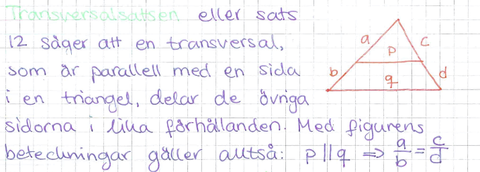 Transversalsatsen eller sats
12 säger att en transversal,
som är parallell med en sida
i en triangel, delar de övriga
sidorna i lika förhållanden. Med figurens
beteckningar gäller alltså: p || q ⇒ a/b = c/d
a
c
p
b
q
d